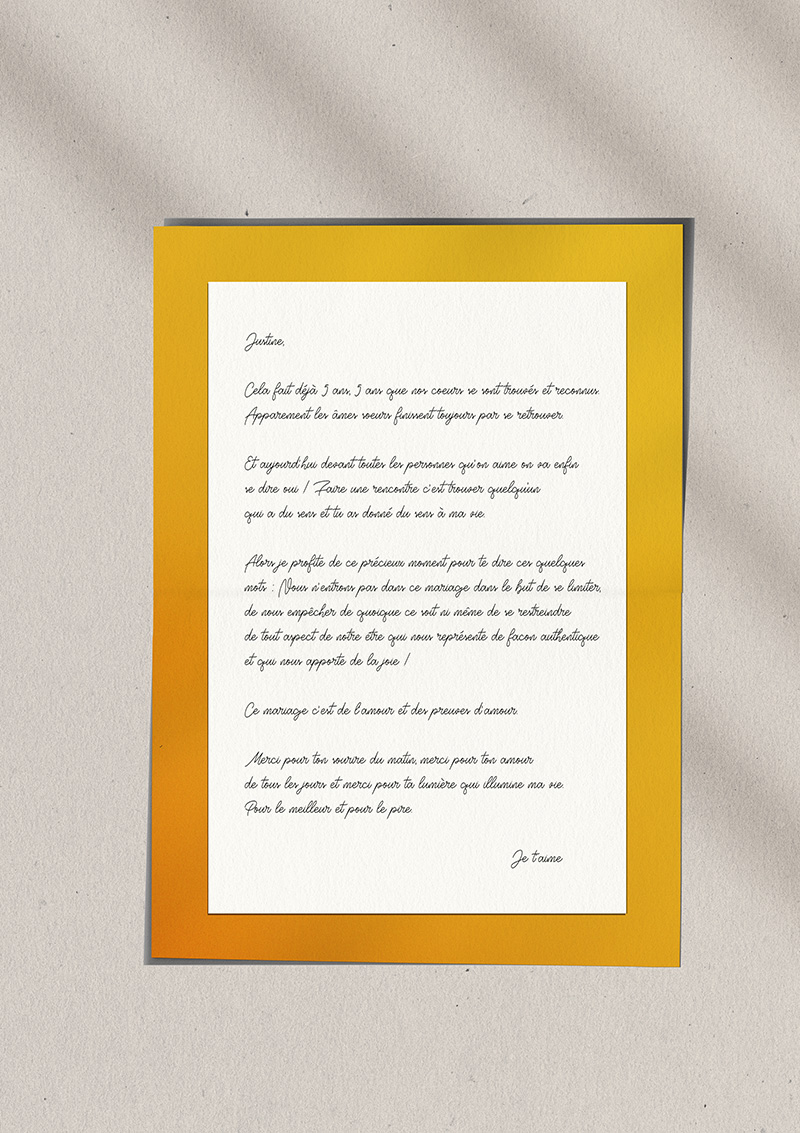 Justine,
Cela fait déjà 9 ans, 9 ans que nos coeurs se sont trouvés et reconnus.
Apparement les âmes soeurs finissent toujours par se retrouver.
Et aujourd'hui devant toutes les personnes qu'on aime on va enfin
se dire oui ! Faire une rencontre c'est trouver quelqu'un
qui a du sens et tu as donné du sens à ma vie.
Alors je profite de ce précieux moment pour te dire ces quelques
mots : Nous n'entrons pas dans ce mariage dans le but de se limiter,
de nous empêcher de quoique ce soit ni même de se restreindre
de tout aspect de notre être qui nous représente de facon authentique
et qui nous apporte de la joie !
Ce mariage c'est de l'amour et des preuves d'amour.
Merci pour ton sourire du matin, merci pour ton amour
de tous les jours et merci pour ta lumière qui illumine ma vie.
Pour le meilleur et pour le pire.
Je t'aime